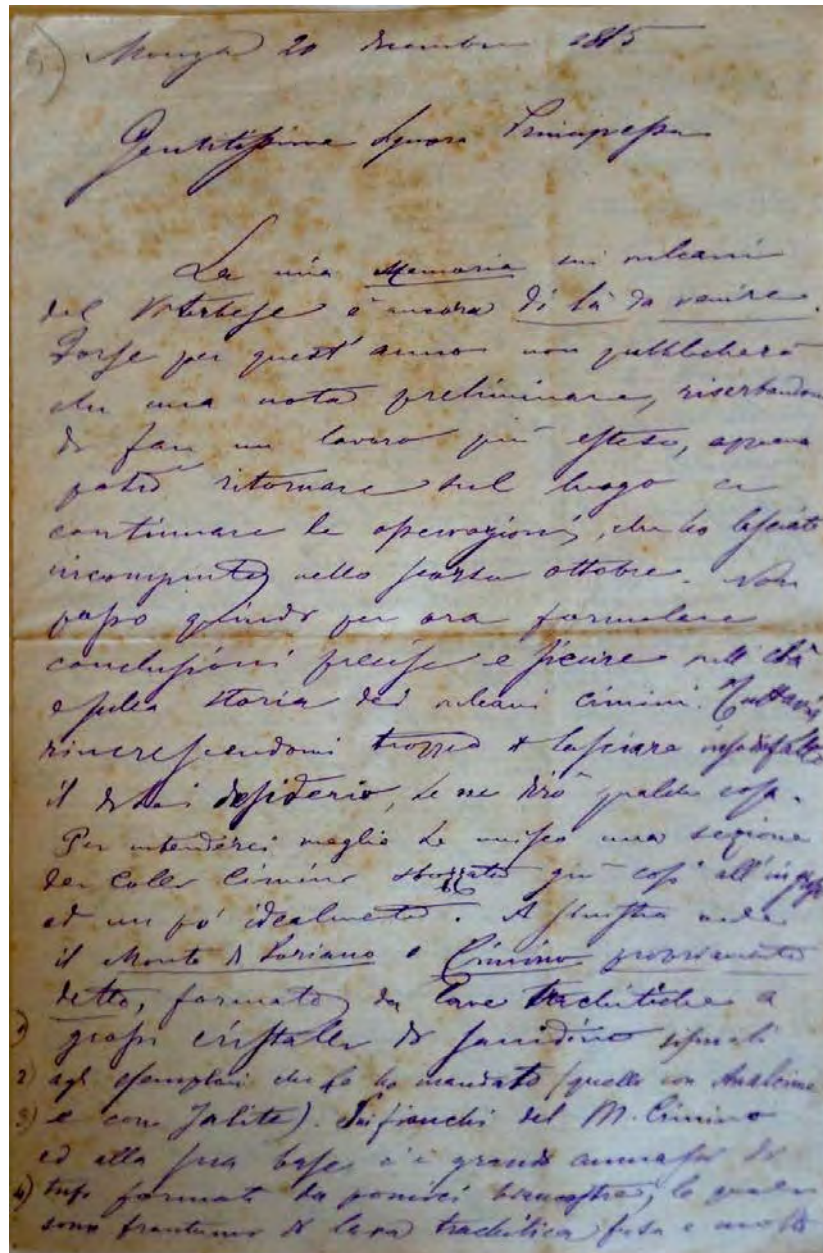 Monza 20 dicembre
Gentilissima Signora Principessa
La mia Memoria sui vulcani
del Viterbese è ancora di là da venire.
Forse per quest'anno non pubblicherò
che una nota preliminare, riserbandomi
di fare un lavoro più esteso, appena
potrò ritornare sul luogo e
continuare le operazioni, che ho lasciate
incompiute nello scorso ottobre. Non
posso quindi per ora formulare
conclusioni precise e sicure sull'età
e sulla storia dei vulcani cimini. Tuttavia
rincrescendomi troppo di lasciare insodisfatto
il di Lei desiderio, Le ne dirò qualche cosa.
Per intenderci meglio Le unisco una sezione
dei Colli Cimini giù così all'ingrosso
ed un po' idealmente. A sinistra vede
il Monte di Soriano o Cimino propriamente
detto, formato da lave trachitiche a
1) grossi cristalli di sanidino
2) agli esemplari che Le ho mandato (quello con Analcime
3) e con Jalite). Sui fianchi del M. Cimino
ed alla sua base c'è grandi ammassi di
4) tufi formati da pomici biancastre, le quali
sono frantumi di lava trachitica fusa e